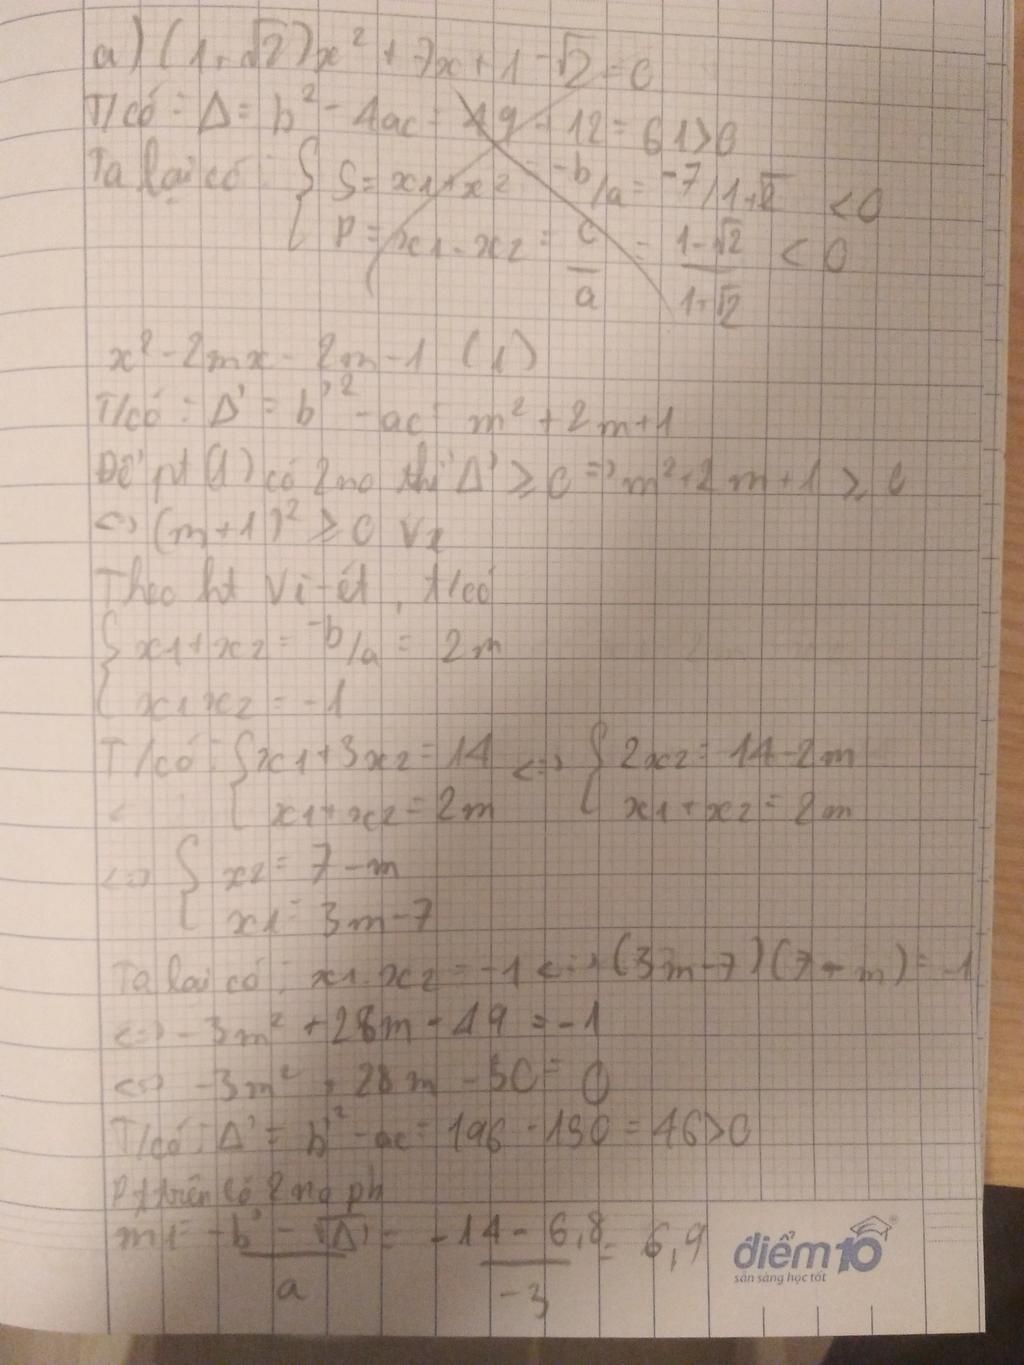 a) (1+√2)x² + 7x + 1 - √2 = 0
T/có : Δ = b² - 4ac = 49 + 12 = 61 > 0
Ta lại có : { S = x1 + x2 -b/a = -7/1+√2 < 0
{ P = x1 . x2 = c/a = 1-√2/1+√2 < 0
x² - 2mx - 2m - 1 (1)
T/có : Δ' = b'² - ac = m² + 2m + 1
Để pt (1) có 2 no thì Δ' ≥ 0 => m² + 2m + 1 ≥ 0
<=> (m+1)² ≥ 0 ∀x
Theo ht Vi-ét, t/có
{ x1 + x2 = -b/a = 2m
{ x1 x2 = -1
T/có : { x1 + 3x2 = 14 <=> { 2x2 = 14 - 2m
{ x1 + x2 = 2m { x1 + x2 = 2m
<=> { x2 = 7 - m
{ x1 = 3m - 7
Ta lại có : x1.x2 = -1 <=> (3m-7)(7-m) = -1
<=> -3m² + 28m - 49 = -1
<=> -3m² + 28m - 50 = 0
T/có : Δ' = b'² - ac = 196 - 150 = 46 > 0
Pt trên có 2 no pb
m1 = -b' - √Δ'/a = -14 - 6,8/-3 = 6,9
điểm10
sẵn sàng học tốt